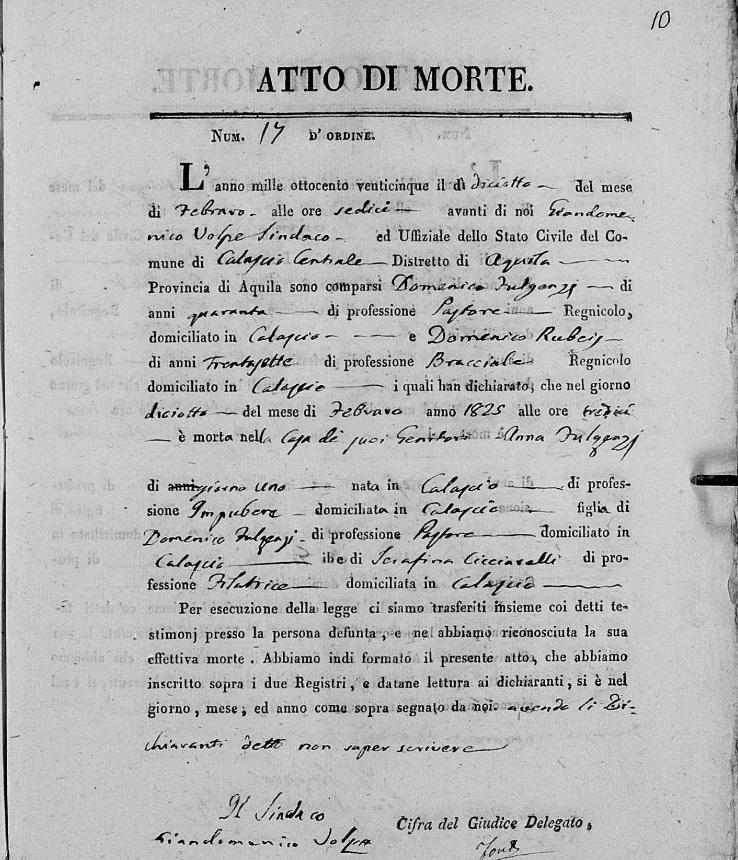 10
ATTO DI MORTE.
NUM. 17 D'ORDINE.
L'anno mille ottocento venticinque il dì diciotto del mese
di Febraro alle ore sedici avanti di noi Giandome-
nico Volpe Sindaco ed Uffiziale dello Stato Civile del Co-
mune di Calascio Centrale Distretto di Aquila
Provincia di Aquila sono comparsi Domenico Fulgenzj di
anni quaranta di professione Pastore Regnicolo,
domiciliato in Calascio e Domenico Rubeis
di anni Trentasette di professione Bracciale Regnicolo
domiciliato in Calascio i quali han dichiarato, che nel giorno
diciotto del mese di Febraro anno 1825 alle ore tredici
è morta nella Casa de suoi Genitori Anna Fulgenzj
di anni giorno uno nata in Calascio di profes-
sione Impubere domiciliata in Calascio figlia di
Domenico Fulgenzj di professione Pastore domiciliato in
Calascio e di Serafina Cicciarelli di pro-
fessione Filatrice domiciliata in Calascio
Per esecuzione della legge ci siamo trasferiti insieme coi detti te-
stimonj presso la persona defunta, e ne abbiamo riconosciuta la sua
effettiva morte. Abbiamo indi formato il presente atto, che abbiamo
inscritto sopra i due Registri, e datane lettura ai dichiaranti, si è nel
giorno, mese, ed anno come sopra segnato da noi. avendo li Di-
chiaranti detto non saper scrivere
Il Sindaco
Giandomenico Volpe
Cifra del Giudice Delegato,